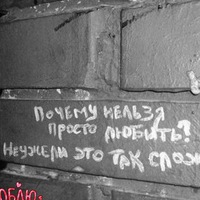 Почему нельзя
просто любить?
Неужели это так слож
юблю